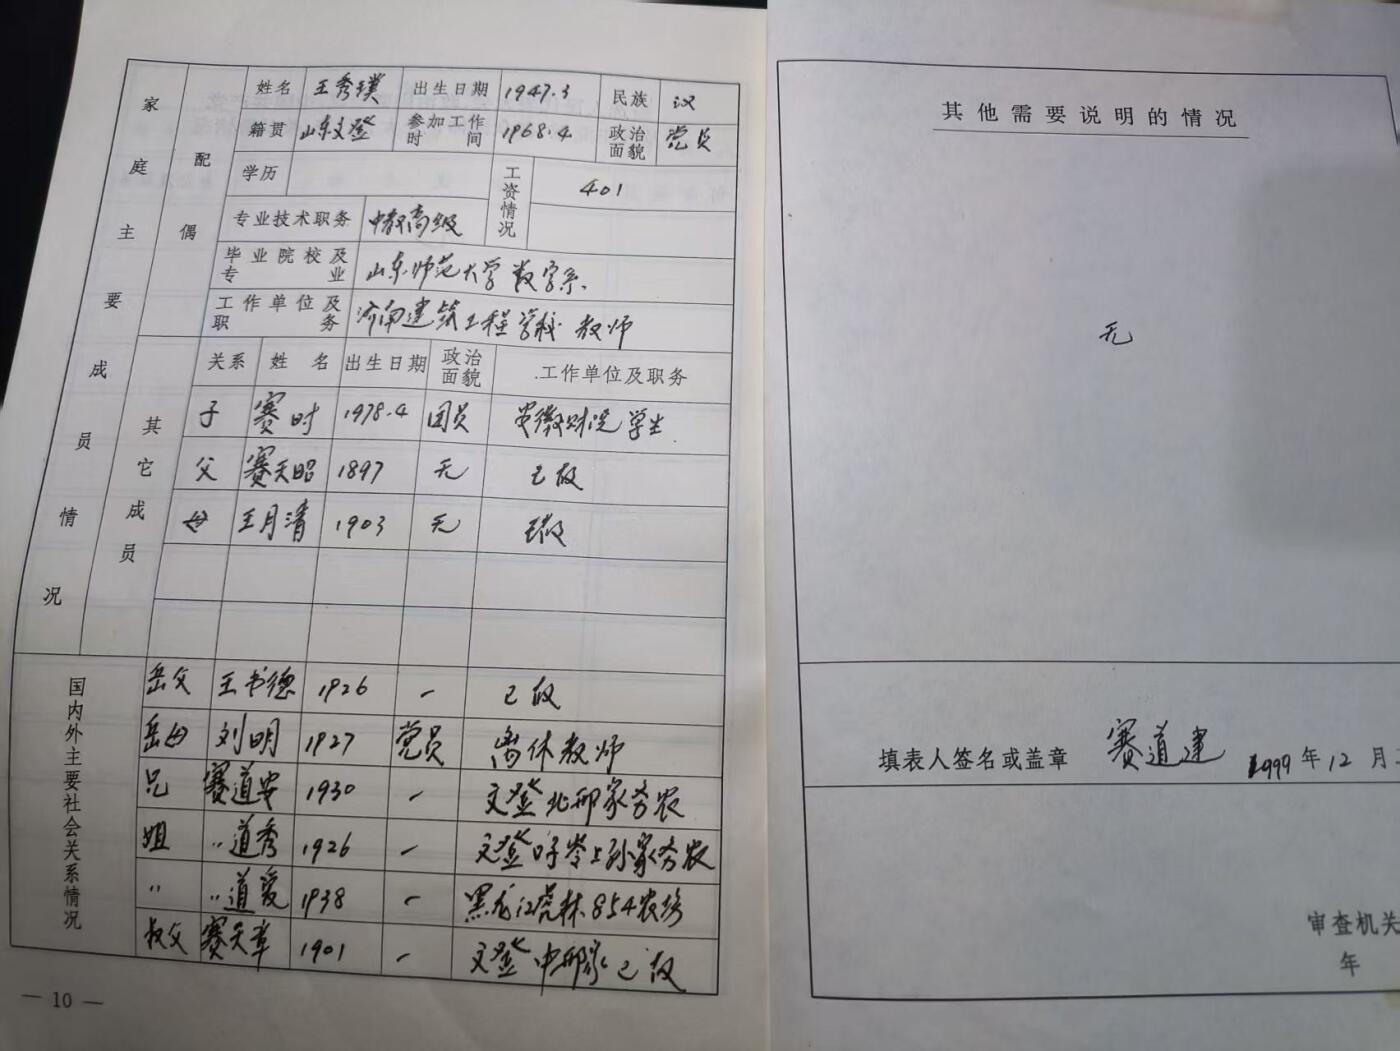 家庭主要成员情况
配偶
姓名 王秀璞 出生日期 1947.3 民族 汉
籍贯 山东文登 参加工作时间 1968.4 政治面貌 党员
学历 工资情况 401
专业技术职务 中教高级
毕业院校及专业 山东师范大学数学系.
工作单位及职务 济南建筑工程学校 教师
其它成员
关系 姓名 出生日期 政治面貌 工作单位及职务
子 赛时 1978.4 团员 安徽财院 学生
父 赛天昭 1897 无 已故
母 王月清 1903 无 已故
国内外主要社会关系情况
岳父 王书德 1926 — 已故
岳母 刘明 1927 党员 离休教师
兄 赛道安 1930 — 文登北邢家务农
姐 〃道秀 1926 — 文登 岭上孙家务农
〃 〃道爱 1938 — 黑龙江虎林854农场
叔父 赛天章 1901 — 文登中邢家已故
— 10 —
其他需要说明的情况
无
填表人签名或盖章 赛道建 1999年12月
审查机关
年